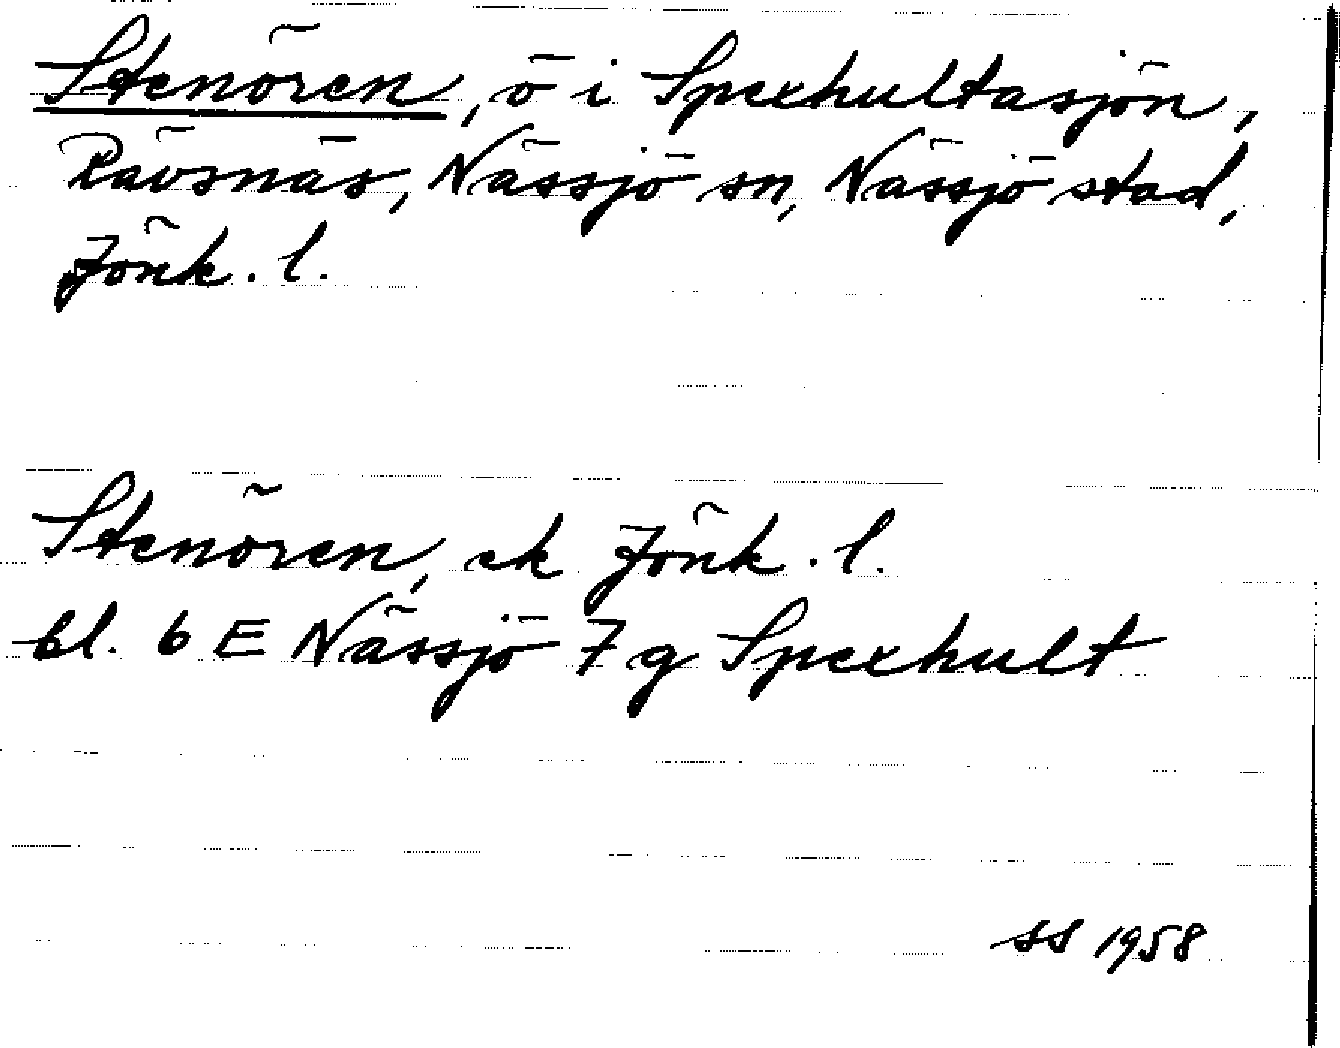 Stenören, ö i Spexhultasjön,
Rävsnäs, Nässjö sn, Nässjö stad,
Jönk. l.
Stenören, ek Jönk. l.
bl. 6 E Nässjö 7 g Spexhult
SS 1958